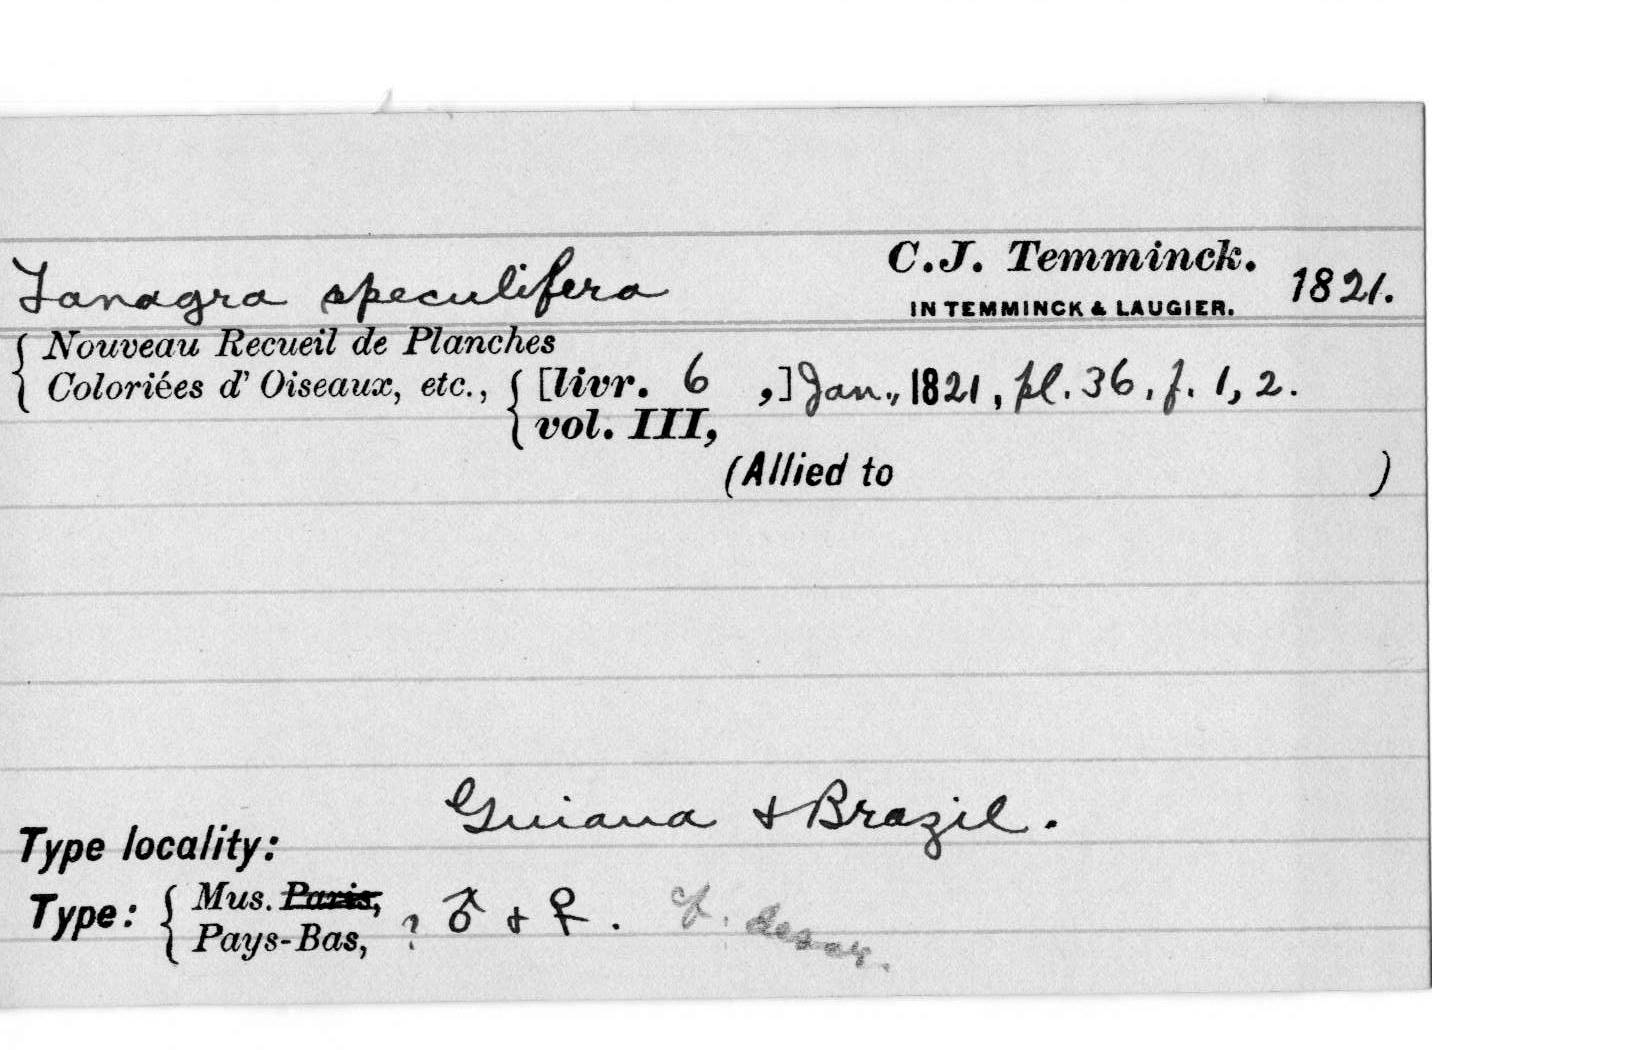 Tanagra speculifera C.J. Temminck. 1821.
IN TEMMINCK & LAUGIER.
Nouveau Recueil de Planches
Coloriées d' Oiseaux, etc., [livr. 6 ,] Jan., 1821, pl. 36, f. 1, 2.
vol. III,
(Allied to )
Guiana & Brazil.
Type locality:
Type: Mus. Paris,
Pays-Bas, ? ♂ & ♀. Cf. descr.